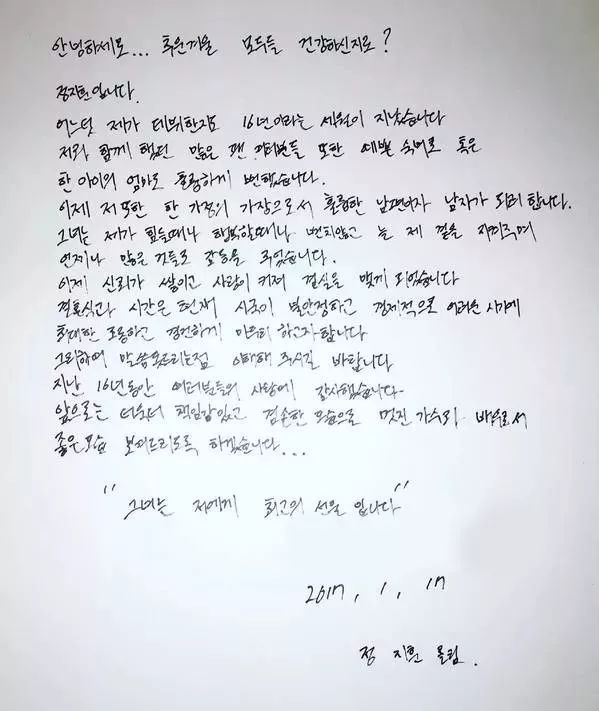 안녕하세요... 추운겨울 모두들 건강하신지요?
정지훈입니다.
어느덧 제가 데뷔한지 16년이라는 세월이 지났습니다
저와 함께 했던 많은 팬 여러분들 또한 예쁜 숙녀로 혹은
한 아이의 엄마로 훌륭하게 변했습니다.
이제 저 또한 한 가정의 가장으로서 훌륭한 남편이자 남자가 되려 합니다.
그녀는 제가 힘들때나 행복할때나 변치않고 늘 제 곁을 지켜주며
언제나 많은 것들로 감동을 주었습니다.
이제 신뢰가 쌓이고 사랑이 커져 결실을 맺게 되었습니다
결혼식과 시간은 현재 시국이 불안정하고 경제적으로 어려운 시기에
최대한 조용하고 경건하게 마음의 하고자합니다
그리하여 말씀못드리는점 이해해 주시길 바랍니다
지난 16년동안 여러분들의 사랑에 감사했습니다.
앞으로는 더욱더 책임감있고 겸손한 모습으로 멋진 가수와 배우로서
좋은모습 보여드리도록 하겠습니다...
"그녀는 저에게 최고의 선물 입니다"
2017, 1, 17
정 지훈 올림.